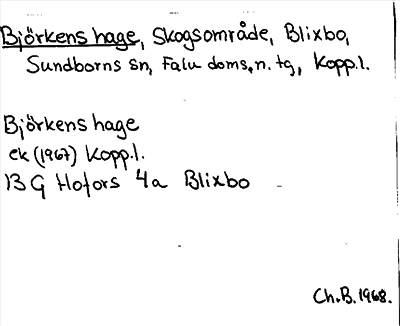 Björkens hage, Skogsområde, Blixbo,
Sundborns sn, Falu doms.n. tg, Kopp.l.
Björkens hage
ek (1967) Kopp.l.
13 G Hofors 4a Blixbo
Ch.B. 1968.